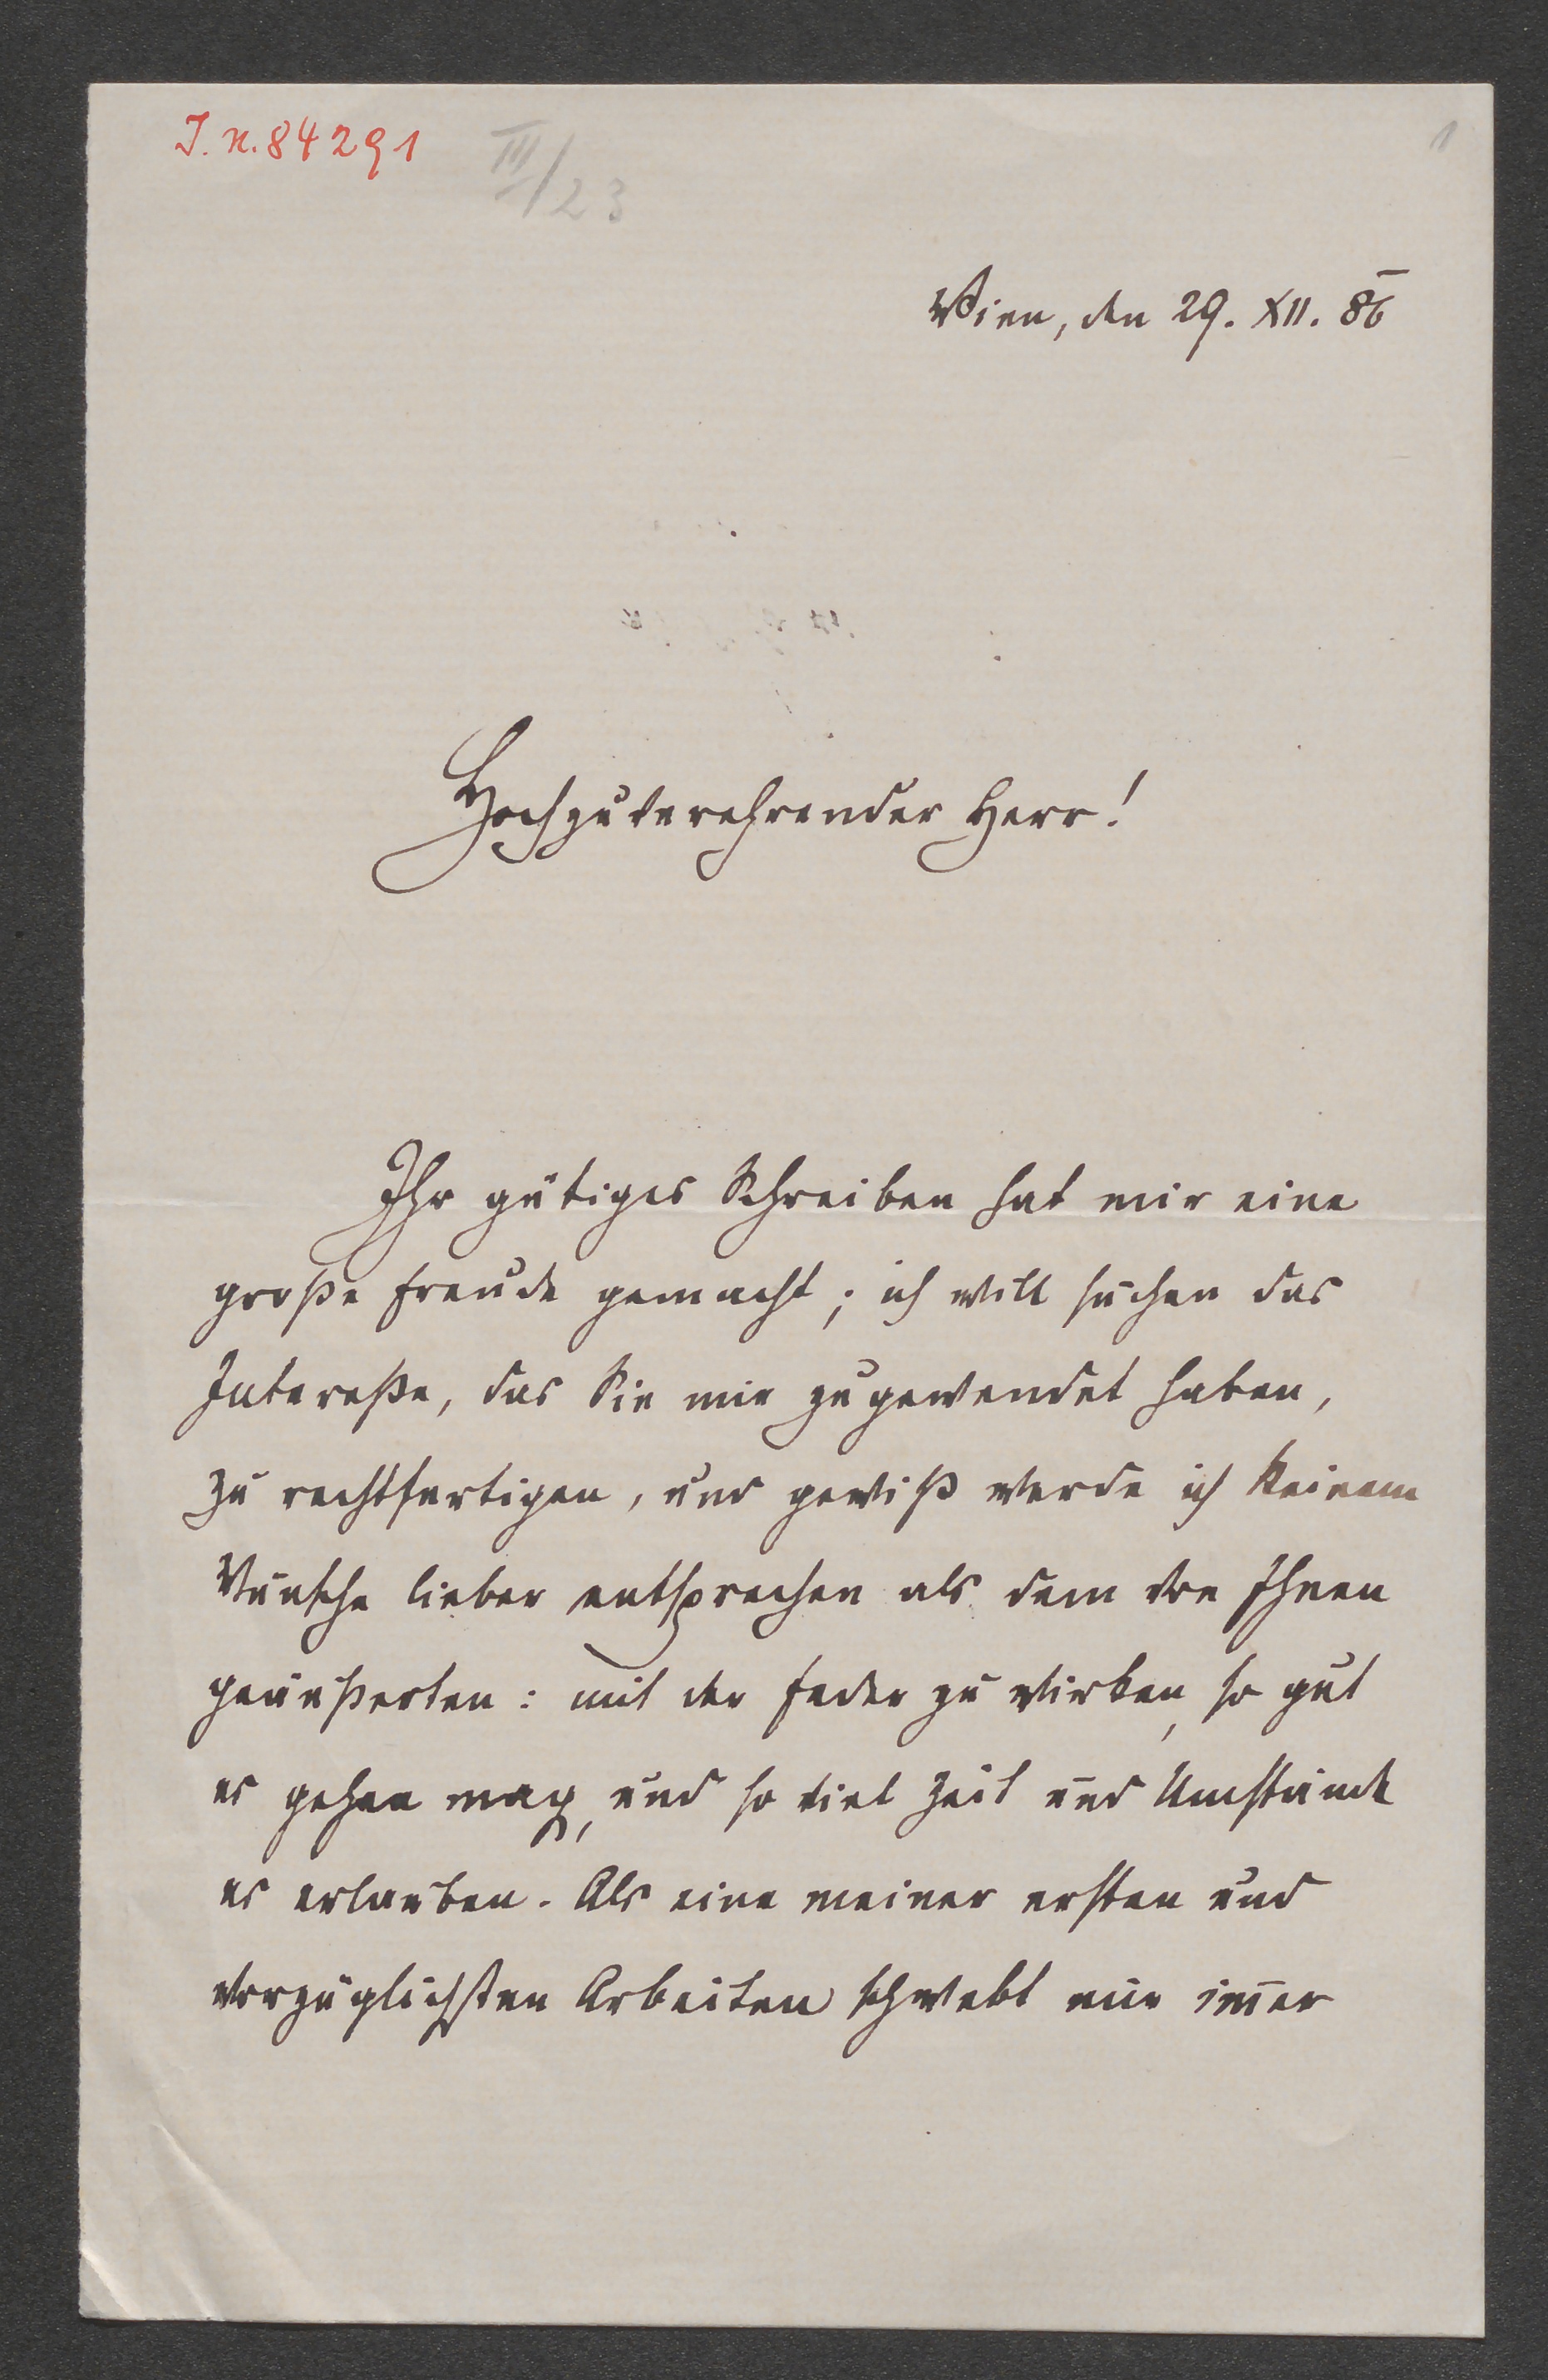 I. N. 84291
III/23
1
Wien, den 29. XII. 86
Hochzuverehrender Herr!
Ihr gütiges Schreiben hat mir eine
große Freude gemacht; ich will suchen das
Intereße, das Sie mir zugewendet haben,
zu rechtfertigen, und gewiß werde ich keinem
Wunsche lieber entsprechen als dem von Ihnen
geäußerten: mit der Feder zu wirken, so gut
es gehen mag, und so viel Zeit und Umstände
es erlauben. Als eine meiner ersten und
vorzüglichsten Arbeiten schwebt mir im̅er